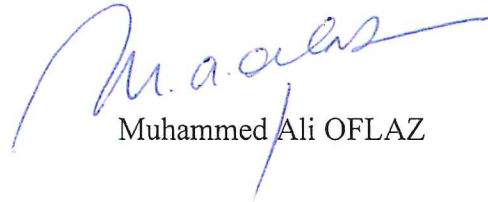 M. a. oflaz
Muhammed Ali OFLAZ